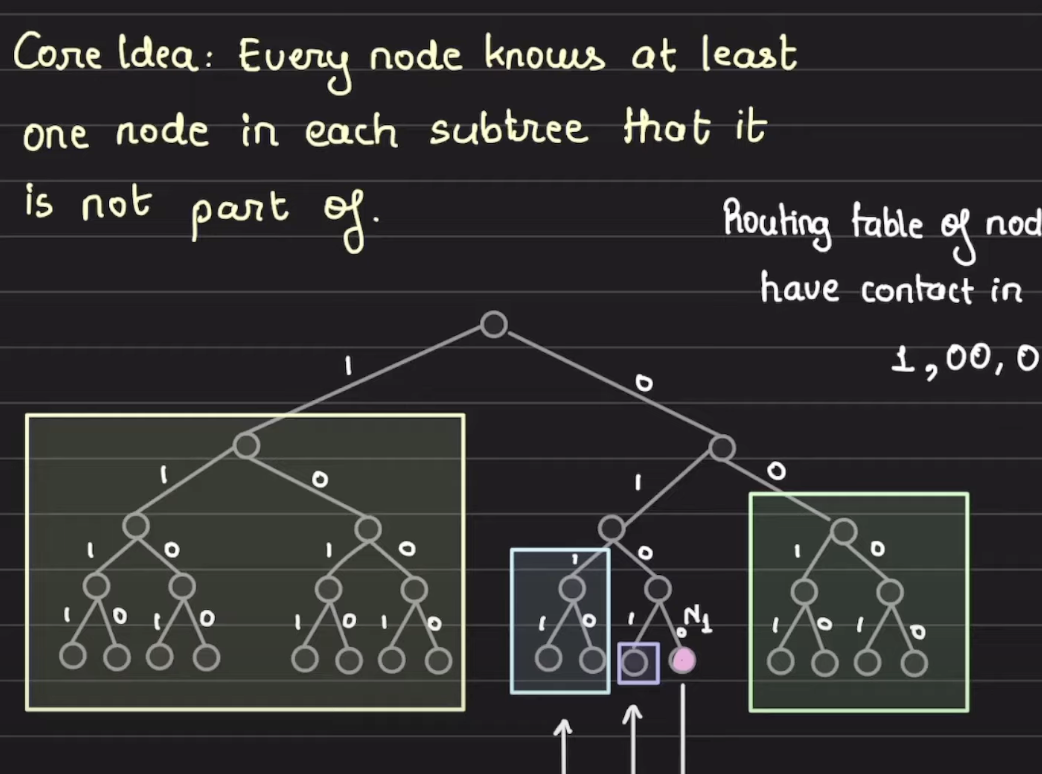 Core Idea: Every node knows at least
one node in each subtree that it
is not part of.
Routing table of nod
have contact in
1,00,0
1 0
1 0 1 0
1 0 1 0 1 0 1 0
1 0 1 0 1 0 1 0 1 0 1 0 N1 1 0 1 0